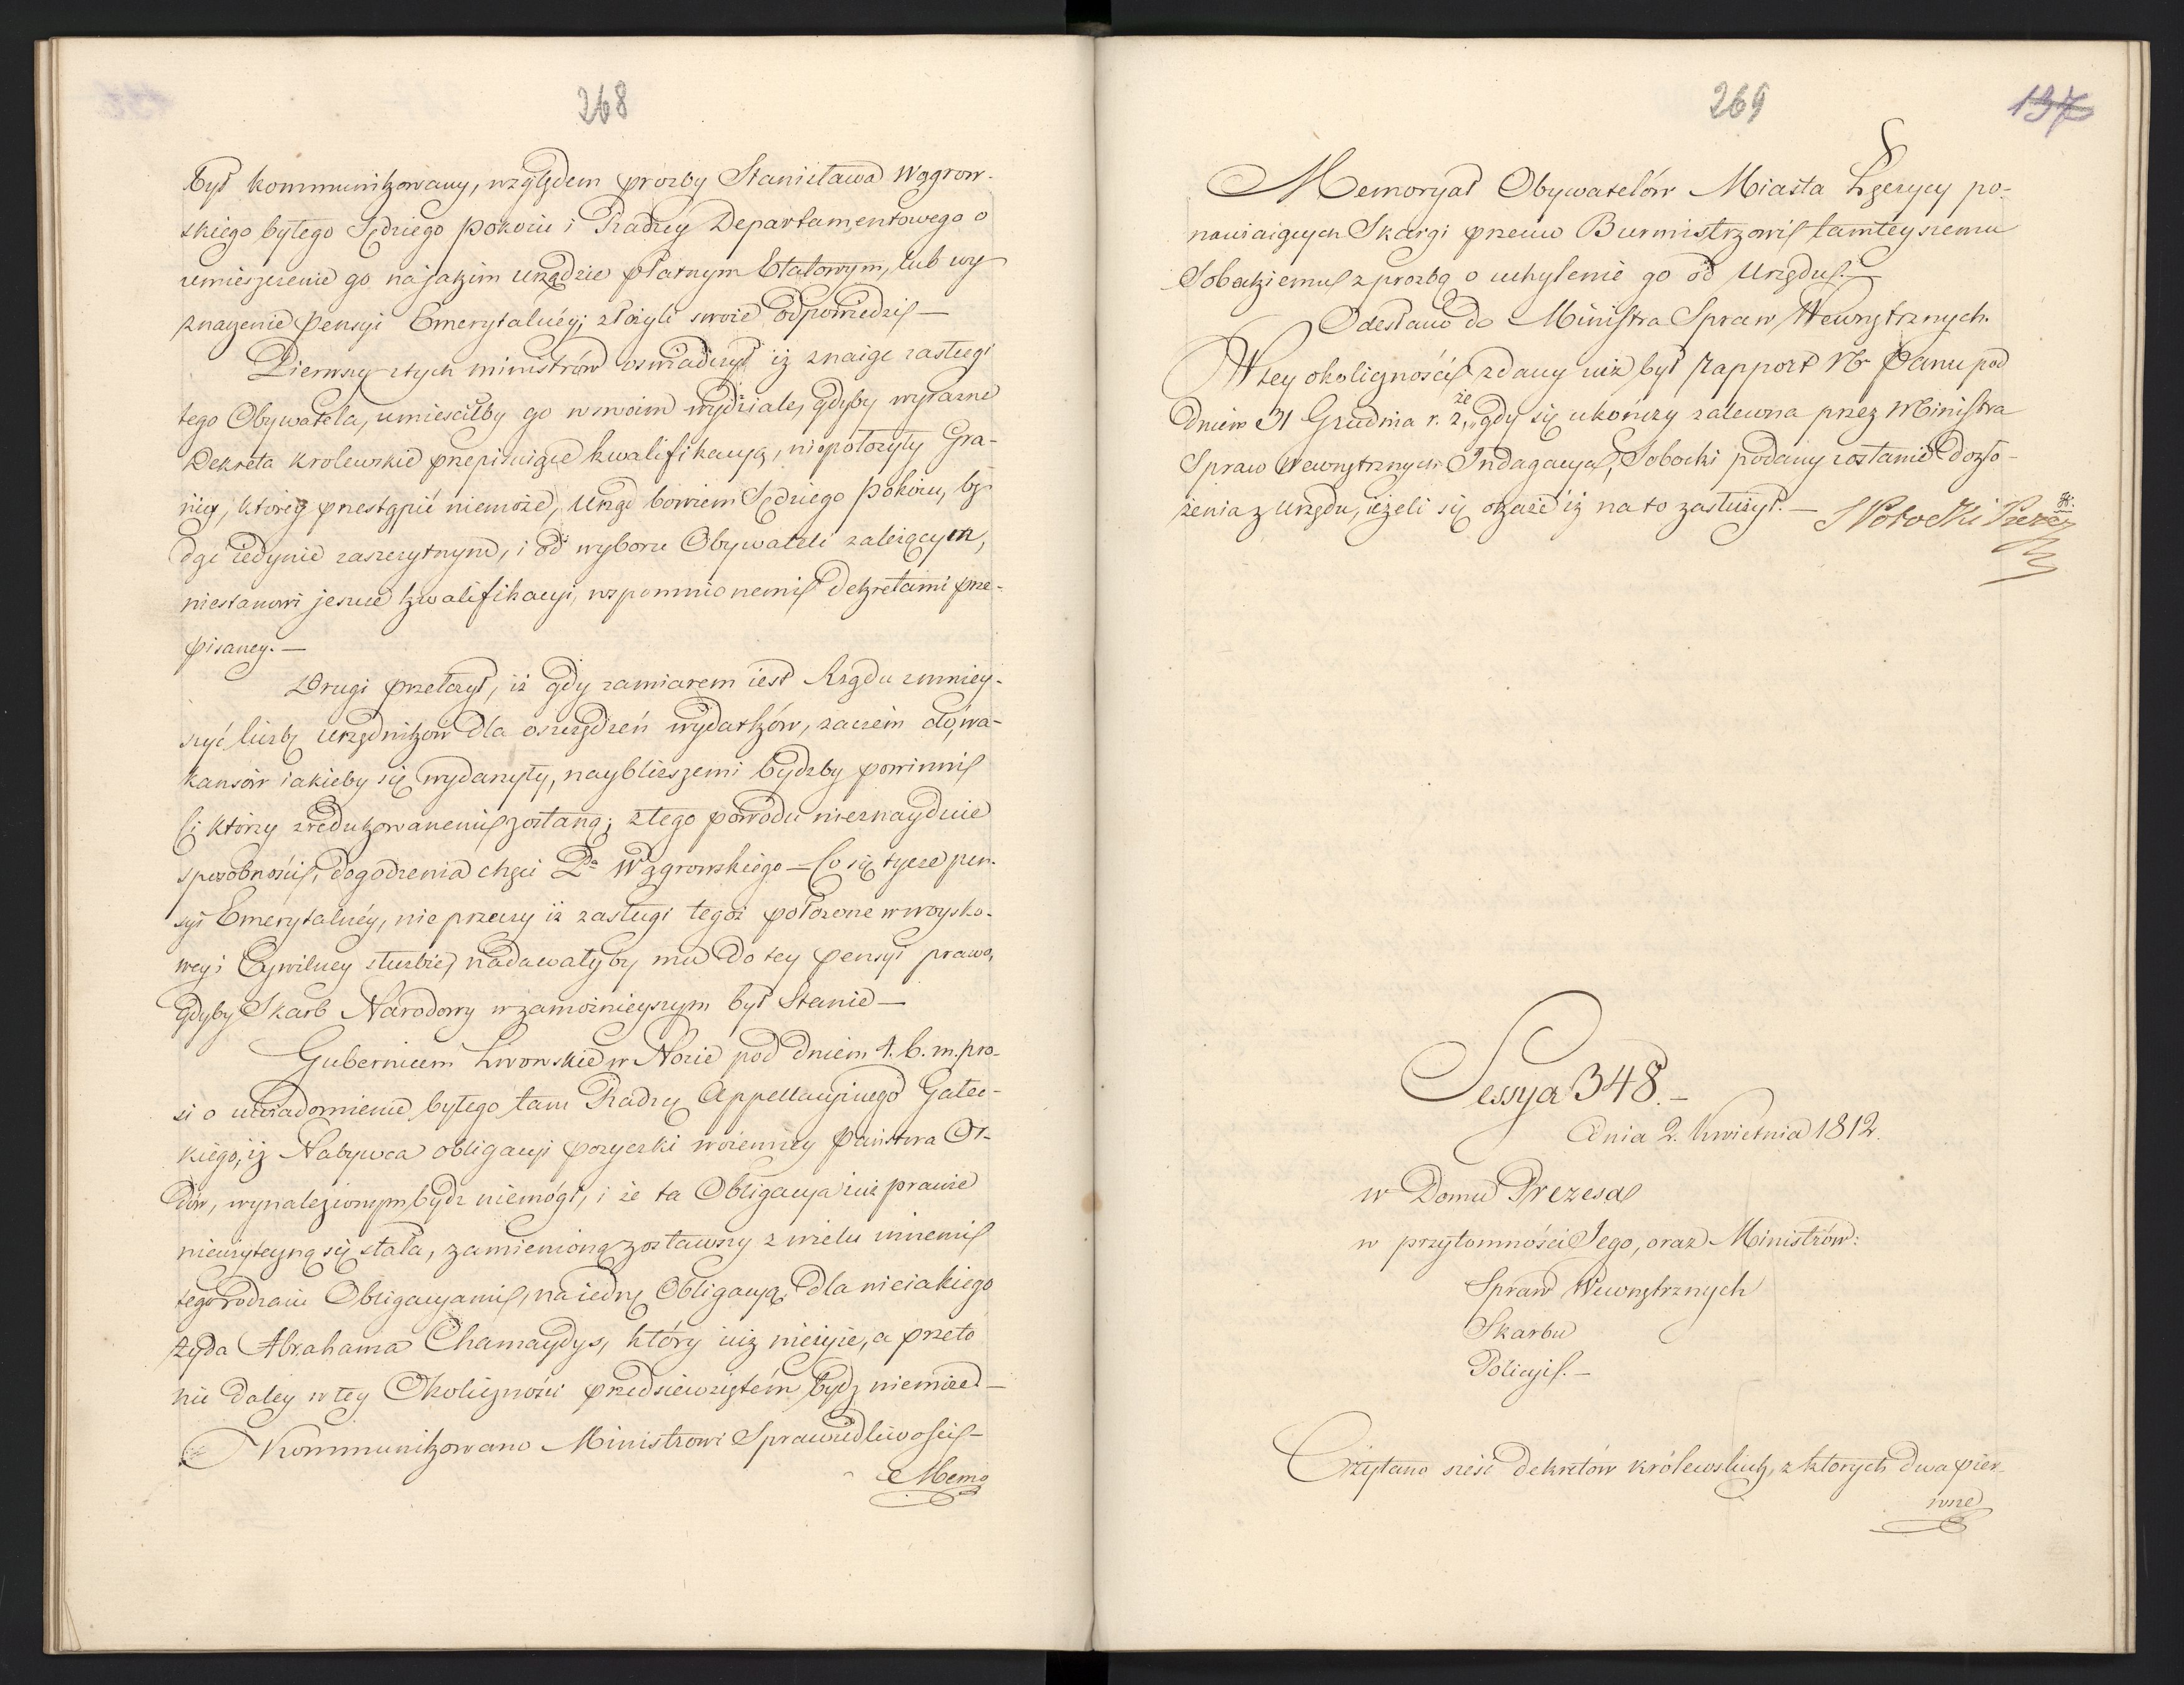 268
był kommunikowany, względem prozby Stanisława Wągrow-
skiego byłego Sędziego Pokoiu i Radzcy Departamentowego o
umieszczenie go na jakim urzędzie płatnym Etatowym, lub wy-
znaczenie Pensyi Emerytalnéy; złożyli swoie odpowiedzi —
Pierwszy z tych ministrów oswiadczył iż znaiąc zasługi
tego Obywatela, umieściłby go w swoim wydziale, gdyby wyrazne
Dekreta Krolewskie przepisuiące kwalifikacyą, niepołożyły Gra-
nicy, któréy przestąpić niemoże, Urząd bowiem Sędziego Pokoiu, bę-
dąc iedynie zaszczytnym, i od wyboru Obywateli zależącym,
niestanowi jeszcze kwalifikacyi, wspomnionemi dekretami prze-
pisaney. —
Drugi przełożył, iż gdy zamiarem iest Rządu zmniey-
szyć liczbę Urzędników dla oszczędzeń wydatków, zaczém do wa-
kansów iakieby się wydarzyły, naybliższemi bydzby powinni
Ci którzy zredukowanemi zostaną; z tego powodu nieznayduie
sposobności, dogodzenia chęci Pa Wągrowskiego — Co się tycze pen-
syi Emerytalnéy, nie przeczy iż zasługi tegoż położone w woysko-
wey i Cywilney służbie, nadawałyby mu do tey pensyi prawo,
gdyby Skarb Narodowy w zamożnieyszym był Stanie —
Gubernium Lwowskie w Nocie pod dniem 4. b. m. pro-
si o uwiadomienie byłego tam Radzcy Appellacyinego Gałec-
kiego, iż Nabywca obligacyi pożyczki woienney Państwa Ol-
dów, wynalezionym bydz niemógł, i że ta Obligacya iuż prawie
nieużyteczną się stała, zamienioną zostawszy z wielu innemi
tego rodzaiu Obligacyami, na iednę Obligacyą dla nieiakiego
żyda Abrahama Chamaydys, który iuż nieżyie, a przeto
nic daley w tey Okoliczności przedsiewziętém bydz niemoże —
Kommunikowano Ministrowi Sprawiedliwości —
Memo
269
137
Memoryał Obywatelów Miasta Łęczycy po-
nawiaiących Skargi przeciw Burmistrzowi tamteyszemu
Sobockiemu z prozbą o uchylenie go od Urzędu. —
Odesłano do Ministra Spraw Wewnętrznych.
W tey okoliczności zdany iuż był Rapport N. Panu pod
dniem 31 Grudnia r. z., że gdy się ukończy zalewna przez Ministra
Spraw Wewnętrznych Indagacya, Sobocki podany zostanie do zło-
żenia z urzędu, ieżeli się okaże iż na to zasłużył. — S Potocki Prezes
Sessya 348. —
Dnia 2. Kwietnia 1812.
w Domu Prezesa
w przytomności Jego, oraz Ministrów:
Spraw Wewnętrznych
Skarbu
Policyi. —
Czytano sześć dekretów królewskich, z ktorych dwa pier-
wsze